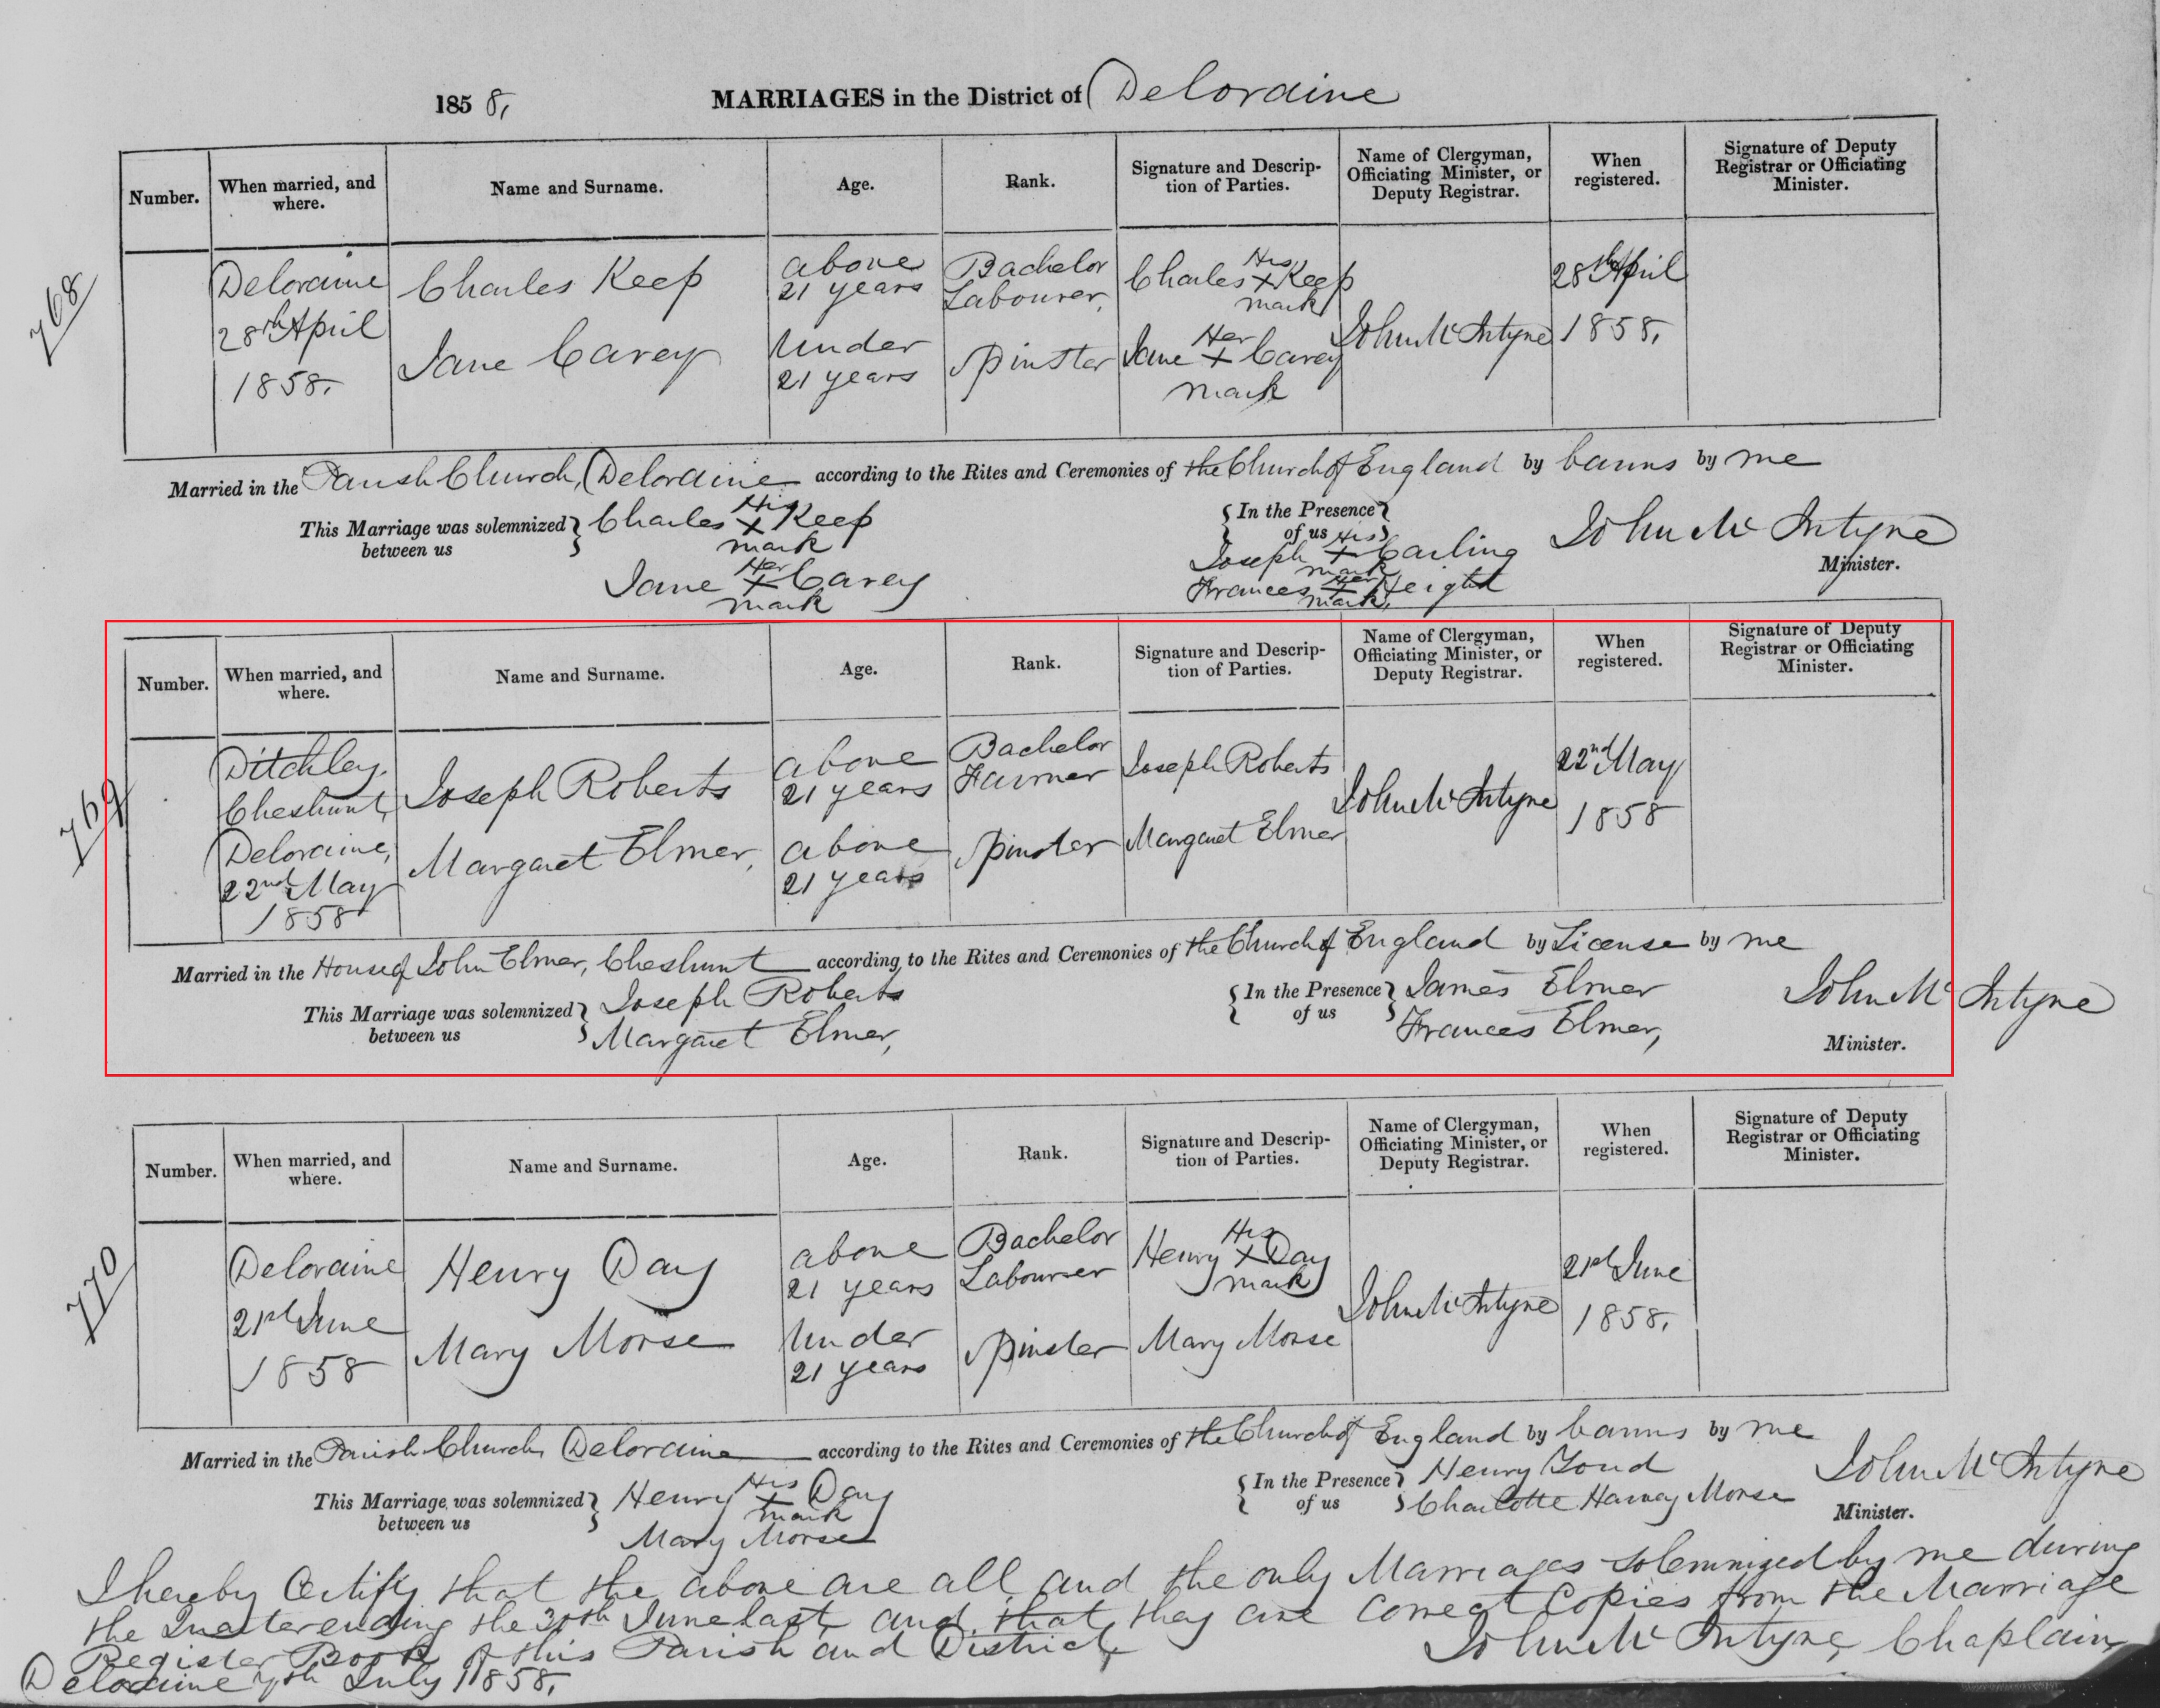 1858, MARRIAGES in the District of Deloraine
Number. When married, and where. Name and Surname. Age. Rank. Signature and Description of Parties. Name of Clergyman, Officiating Minister, or Deputy Registrar. When registered. Signature of Deputy Registrar or Officiating Minister.
768
Deloraine 28th April 1858.
Charles Keep above 21 years Bachelor Labourer, Charles His X mark Keep
Jane Carey Under 21 years Spinster Jane Her X mark Carey
John Mc Intyre
28th April 1858,
Married in the Parish Church, Deloraine according to the Rites and Ceremonies of the Church of England by banns by me
This Marriage was solemnized between us } Charles His X mark Keep
Jane Her X mark Carey
{ In the Presence of us } Joseph His X mark Carling
Frances Her X mark, Height
John Mc Intyre
Minister.
Number. When married, and where. Name and Surname. Age. Rank. Signature and Description of Parties. Name of Clergyman, Officiating Minister, or Deputy Registrar. When registered. Signature of Deputy Registrar or Officiating Minister.
769
Ditchley, Cheshunt, Deloraine, 22nd May 1858
Joseph Roberts above 21 years Bachelor Farmer Joseph Roberts
Margaret Elmer, above 21 years Spinster Margaret Elmer
John Mc Intyre
22nd May 1858
Married in the House of John Elmer, Cheshunt according to the Rites and Ceremonies of the Church of England by License by me
This Marriage was solemnized between us } Joseph Roberts
Margaret Elmer,
{ In the Presence of us } James Elmer
Frances Elmer,
John Mc Intyre
Minister.
Number. When married, and where. Name and Surname. Age. Rank. Signature and Description of Parties. Name of Clergyman, Officiating Minister, or Deputy Registrar. When registered. Signature of Deputy Registrar or Officiating Minister.
770
Deloraine 21st June 1858
Henry Day above 21 years Bachelor Labourer Henry His X mark Day
Mary Morse Under 21 years Spinster Mary Morse
John Mc Intyre
21st June 1858,
Married in the Parish Church, Deloraine according to the Rites and Ceremonies of the Church of England by banns by me
This Marriage was solemnized between us } Henry His X mark Day
Mary Morse
{ In the Presence of us } Henry
Charlotte Harvey Morse
John Mc Intyre
Minister.
I hereby Certify that the above are all and the only Marriages solemnized by me during
the Quarter ending the 30th June last, and that they are correct Copies from the Marriage
Register Book of this Parish and District
John Mc Intyre, Chaplain
Deloraine 7th July 1858.